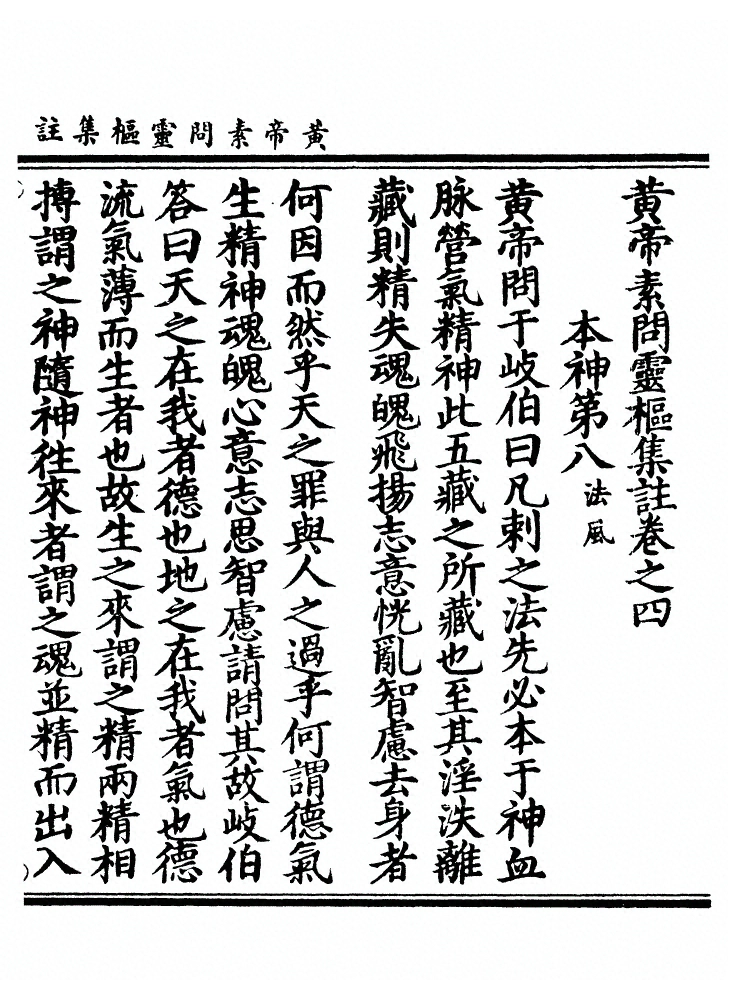 黃帝素問靈樞集註
黃帝素問靈樞集註卷之四
本神第八 法風
黃帝問于岐伯曰凡刺之法先必本于神血
脉營氣精神此五藏之所藏也至其淫泆離
藏則精失魂魄飛揚志意恍亂智慮去身者
何因而然乎天之罪與人之過乎何謂德氣
生精神魂魄心意志思智慮請問其故岐伯
答曰天之在我者德也地之在我者氣也德
流氣薄而生者也故生之來謂之精兩精相
搏謂之神隨神往來者謂之魂並精而出入